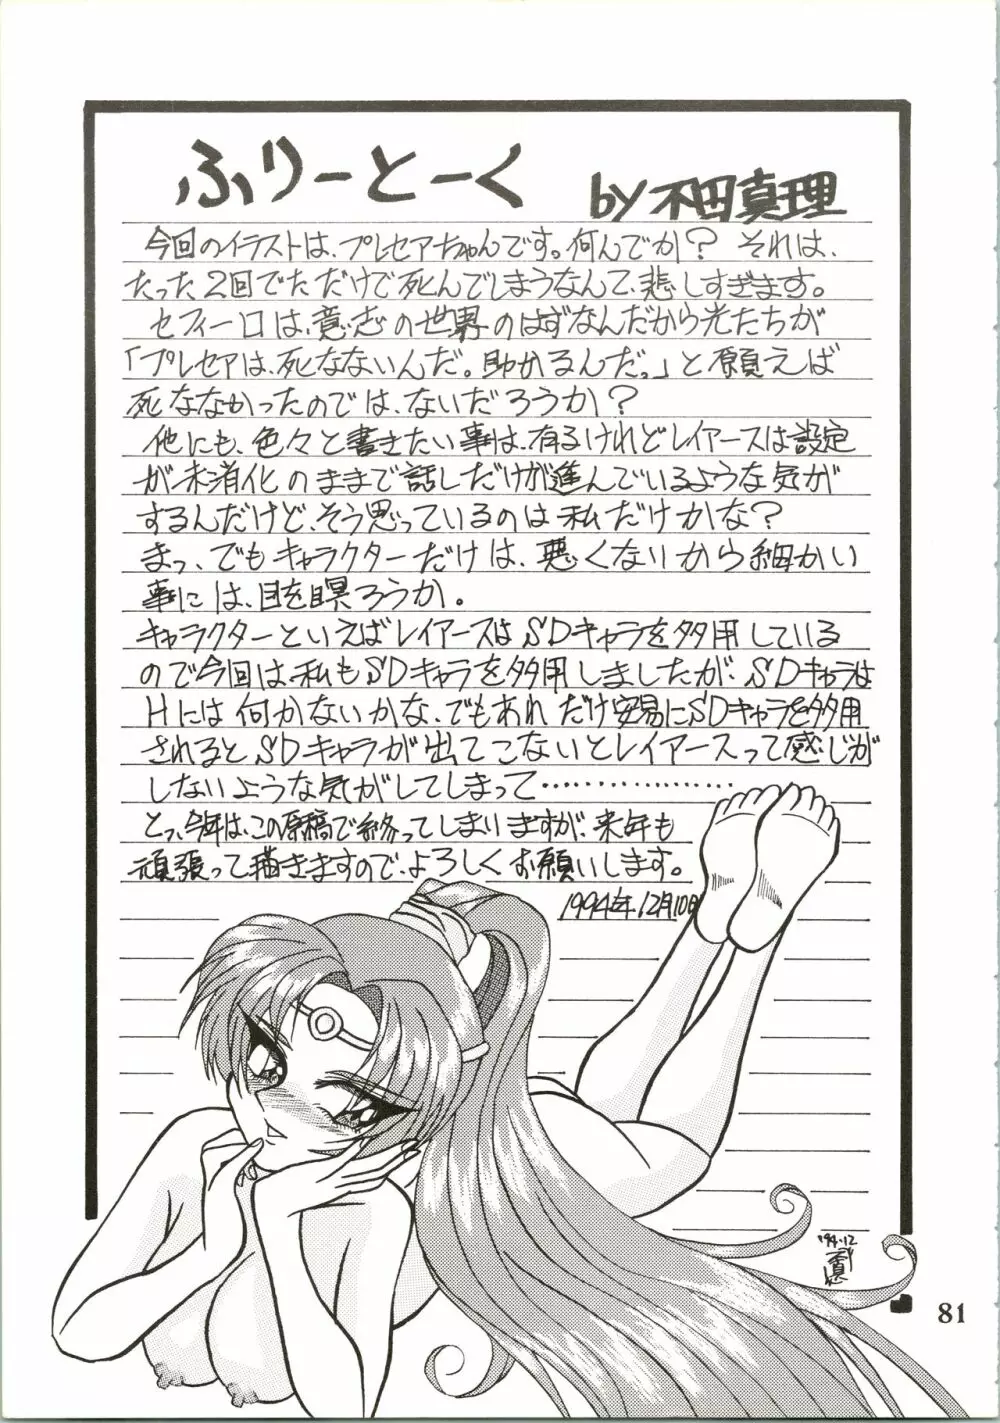 ふりーとーく
by 不田真理
今回のイラストは、プレセアちゃんです。何んでか？ それは、
たった2回でただけで死んでしまうなんて、悲しすぎます。
セフィーロは、意志の世界のはずなんだから光たちが
「プレセアは、死なないんだ。助かるんだっ」と願えば
死ななかったのでは、ないだろうか？
他にも、色々と書きたい事は、有るけれどレイアースは設定
が未消化のままで話しだけが進んでいるような気が
するんだけど、そう思っているのは私だけかな？
まっ、でもキャラクターだけは、悪くないから細かい
事には、目を瞑ろうか。
キャラクターといえばレイアースはSDキャラを多用している
ので今回は、私もSDキャラを多用しましたが、SDキャラは
Hには何かないかな、でもあれだけ安易にSDキャラを多用
されるとSDキャラが出てこないとレイアースって感じが
しないような気がしてしまって……………………
とっ、今年は、この原稿で終ってしまいますが、来年も
頑張って描きますので、よろしくお願いします。
1994年.12月10日
'94.12
81